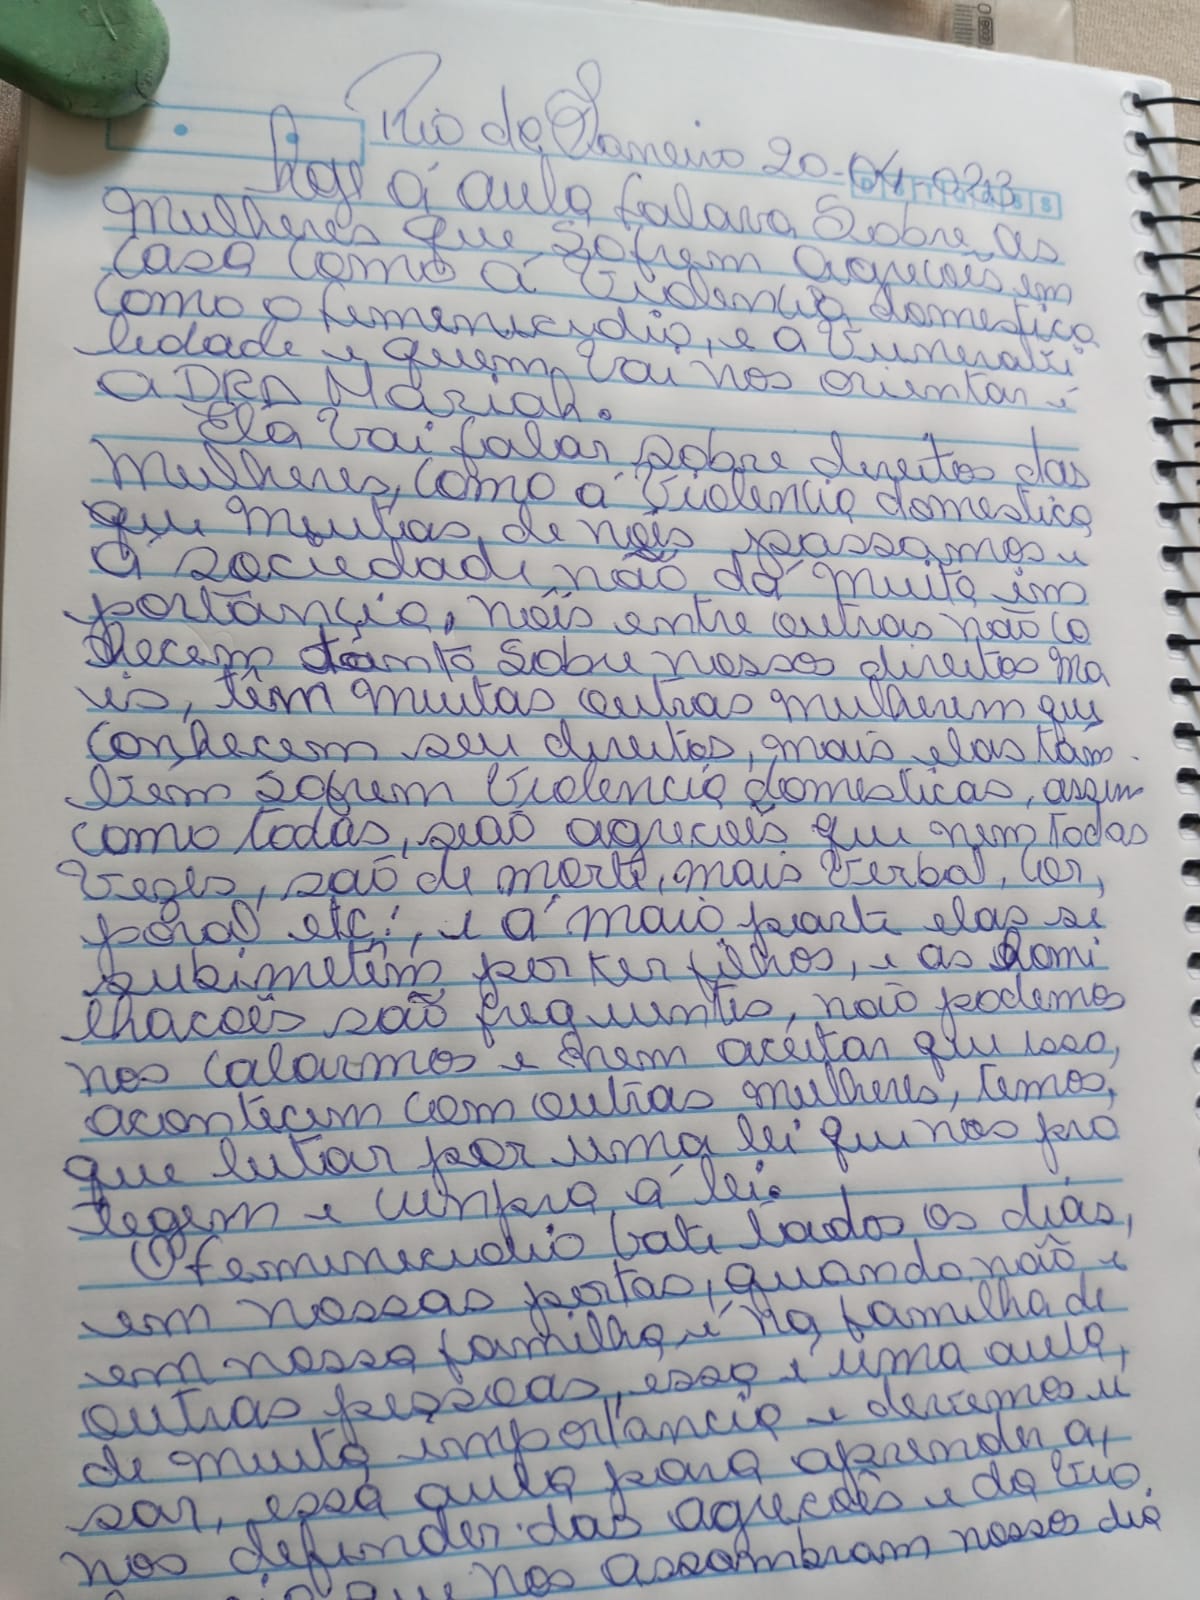 Rio de Janeiro 20-04-023
Hoje á aula falava Sobre as
mulheres que sofrem agrecoês em
casa como á Violencia domestica
como o femenicidio, e a Vunerabi
lidade e quem Vai nos orientar é
a DRA Mariah.
Ela Vai falar sobre direitos das
mulheres, como á Violencia domestica
que muitas de nois passamos e
á sociedade não dá muita im
portância, nois entre outras não co
nhecem tanto sobre nossos direitos ma
is, têm muitas outras mulherem que
conhecem seu direitos, mais elas tam
bém sofrem Violencia domesticas, assim
como todas, seaõ agrecoês que nem todas
Vezes, saõ de morte, mais Verbal, cor,
poral etc:, e á maio parte elas se
subimetêm por ter filhos, e as homi
lhacoês saõ frequentes, naõ podemos
nos calarmos e nem aceitar que isso,
acontecem com outras mulheres, temos,
que lutar por uma lei que nos pro
tegem e cumpra á lei.
O feminicidio bate todos os dias,
em nossas portas, quando naõ e
em nossa familha é na familha de
outras pessoas, essa e uma aula,
de muita importância e devemos u
sar, essa aula para aprender a,
nos defender das agrecoês e da Vio
que nos assombram nossos dia